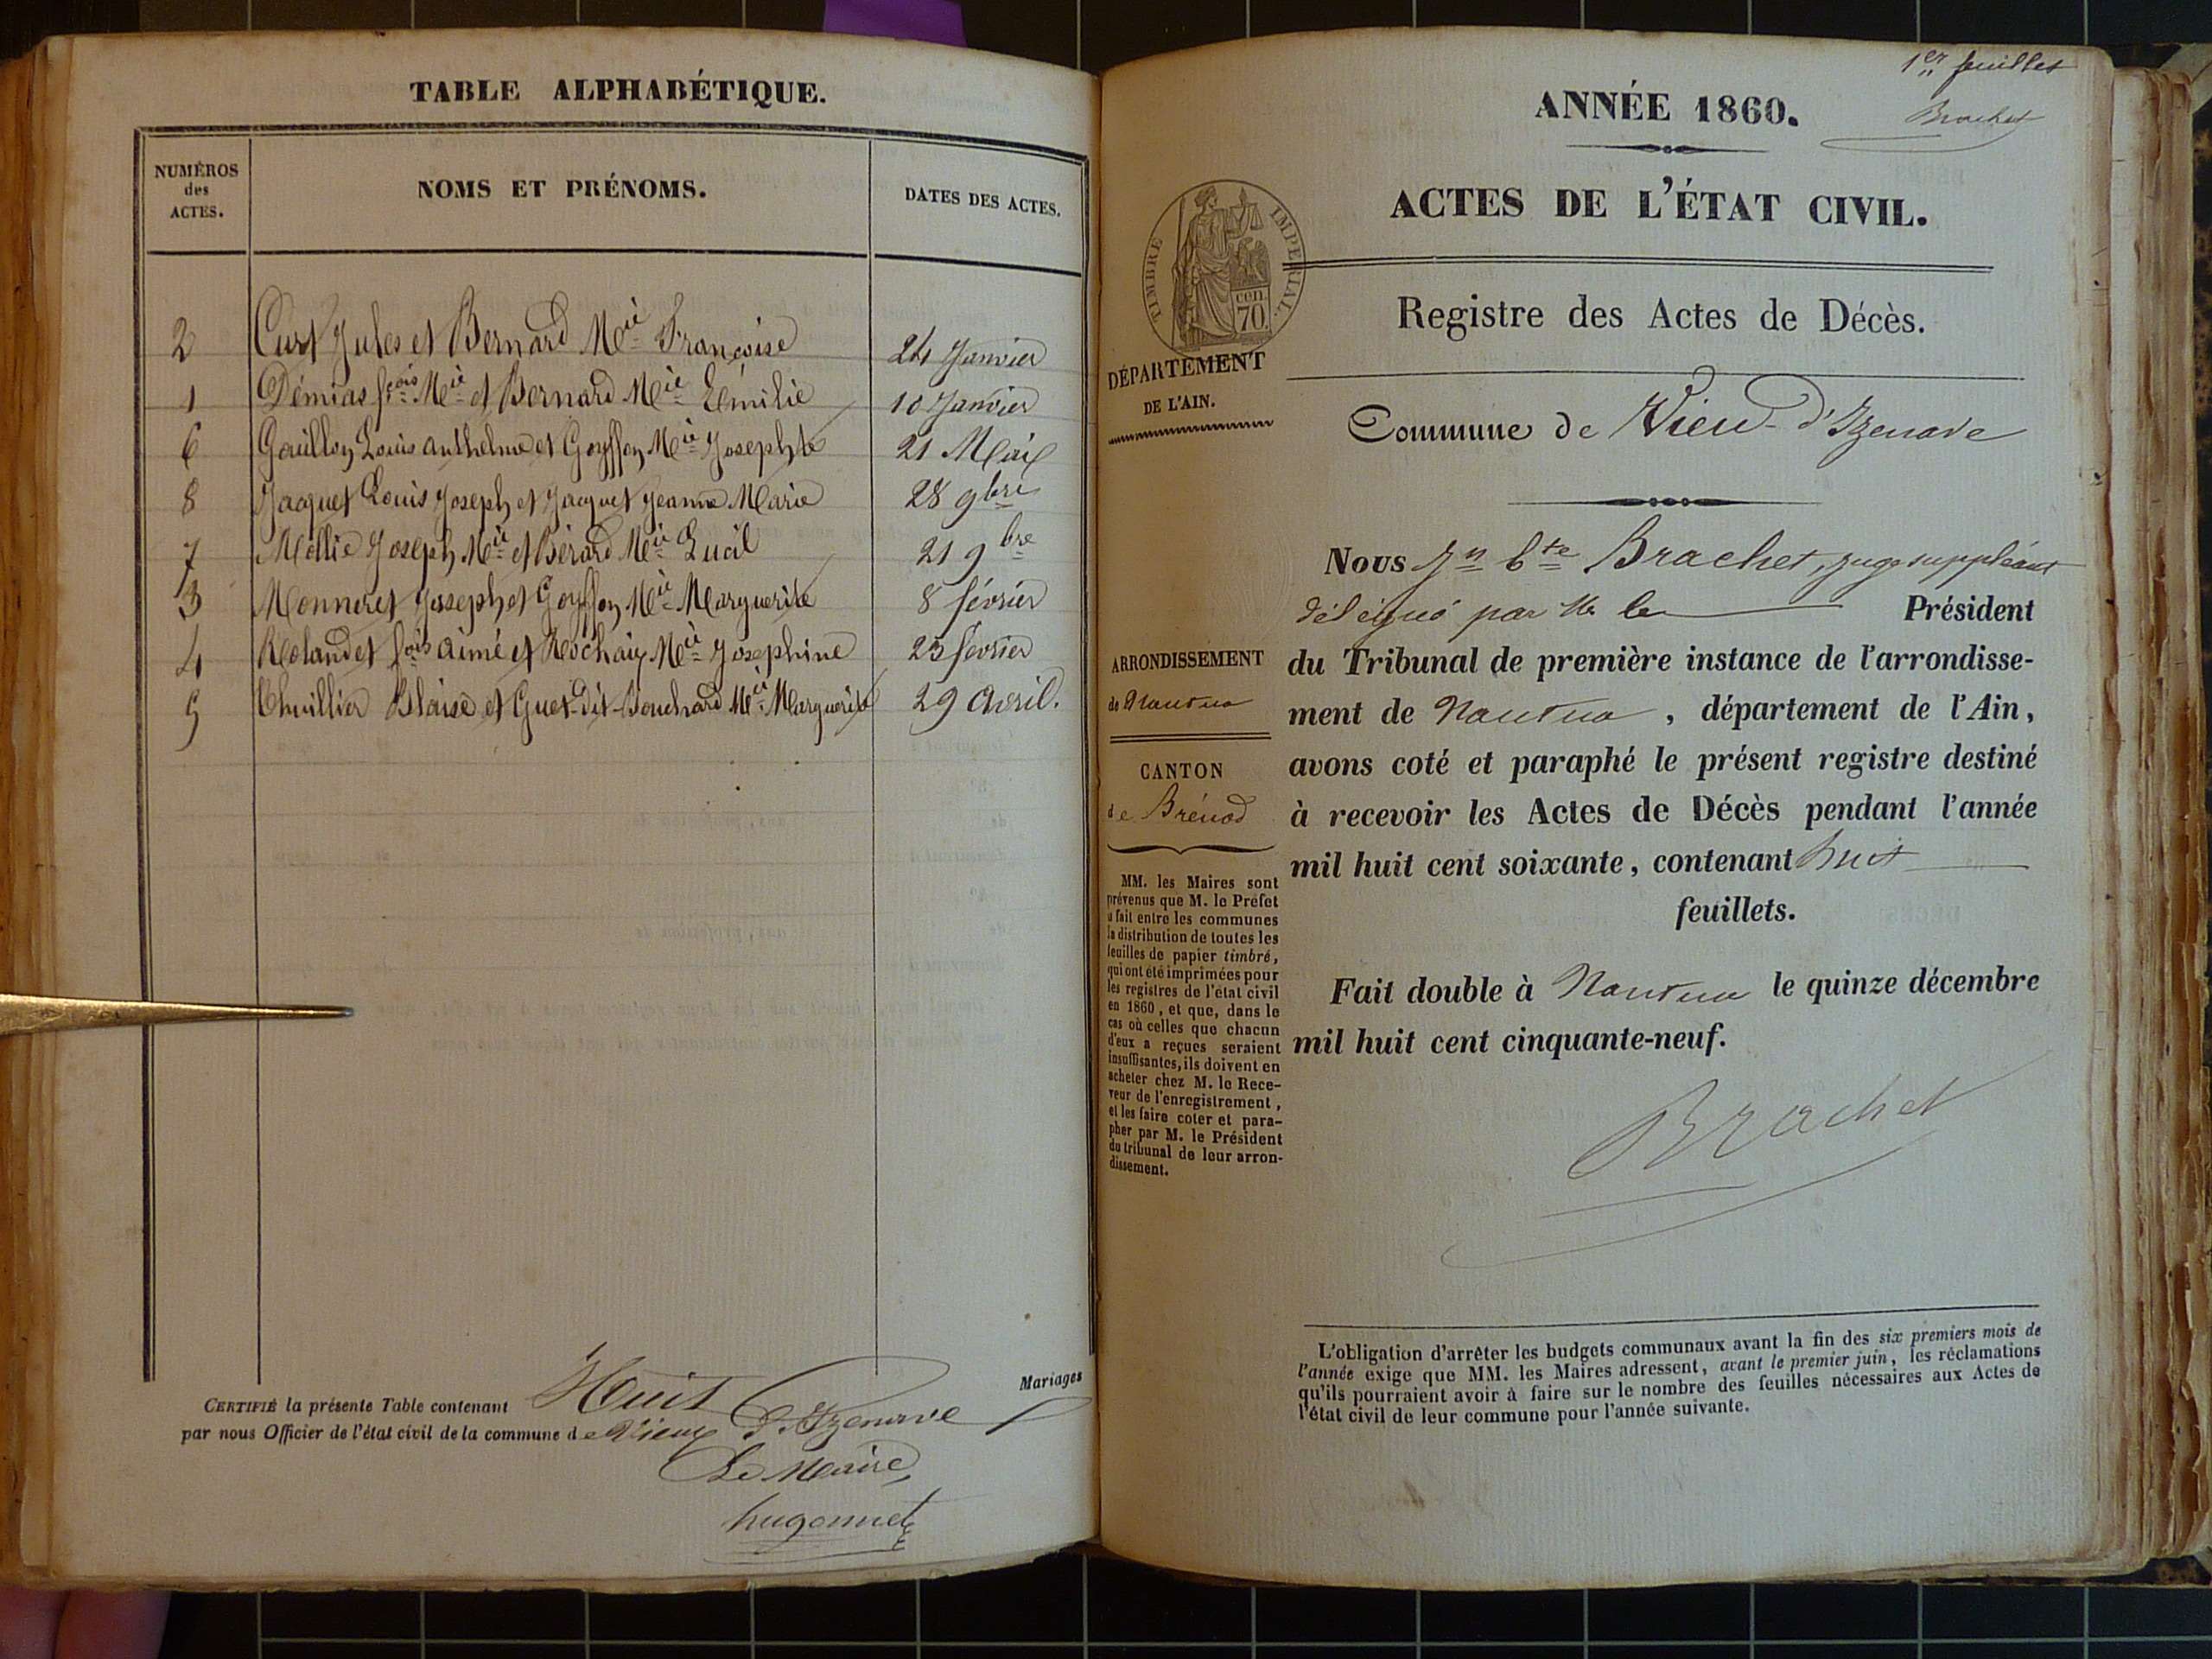 TABLE ALPHABÉTIQUE.
NUMÉROS
des
ACTES.
NOMS ET PRÉNOMS.
DATES DES ACTES.
2 Curt Jules et Bernard Mie Françoise 24 Janvier
1 Démias fcois Mie et Bernard Mie Emilie 10 Janvier
6 Gouillon Louis anthelme et Goyffon Mie Josephte 21 Mai
8 Jacquet Louis Joseph et Jacquet Jeanne Marie 28 9bre
7 Mollie Joseph Mie et Bérard Mie Lucil 21 9bre
3 Monneret Joseph et Goyffon Mie Marguerite 8 février
4 Rolandet fois aimé et Rochaix Mie Josephine 23 février
5 Thuillier Blaise et Guet-dit-Bouchard Mie Marguerite 29 Avril.
CERTIFIÉ la présente Table contenant Huit Mariages
par nous Officier de l'état civil de la commune de Vieux d'Izenave
Le Maire,
hugonnet
1er feuillet
Brachet
ANNÉE 1860.
ACTES DE L'ÉTAT CIVIL.
TIMBRE IMPERIAL.
cen.
70.
Registre des Actes de Décès.
DÉPARTEMENT
DE L'AIN.
Commune de Vieu-d'Izenave
Nous Jn Bte Brachet, juge suppléant
délégué par Mr le Président
du Tribunal de première instance de l'arrondisse-
ment de Nantua, département de l'Ain,
avons coté et paraphé le présent registre destiné
à recevoir les Actes de Décès pendant l'année
mil huit cent soixante, contenant huit
feuillets.
Fait double à Nantua le quinze décembre
mil huit cent cinquante-neuf.
Brachet
ARRONDISSEMENT
de Nantua
CANTON
de Brénod
MM. les Maires sont
prévenus que M. le Préfet
a fait entre les communes
la distribution de toutes les
feuilles de papier timbré,
qui ont été imprimées pour
les registres de l'état civil
en 1860, et que, dans le
cas où celles que chacun
d'eux a reçues seraient
insuffisantes, ils doivent en
acheter chez M. le Rece-
veur de l'enregistrement,
et les faire coter et para-
pher par M. le Président
du tribunal de leur arron-
dissement.
L'obligation d'arrêter les budgets communaux avant la fin des six premiers mois de
l'année exige que MM. les Maires adressent, avant le premier juin, les réclamations
qu'ils pourraient avoir à faire sur le nombre des feuilles nécessaires aux Actes de
l'état civil de leur commune pour l'année suivante.